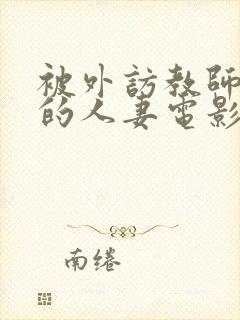 被外訪教師
的人妻電影
南绻